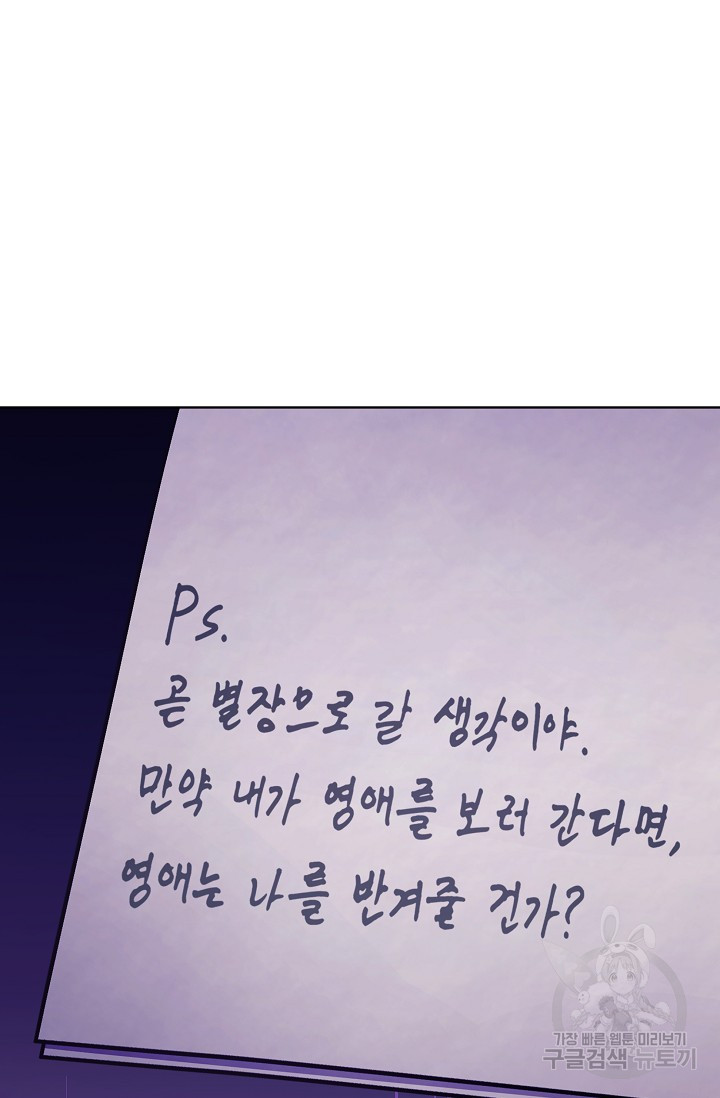 Ps.
곧 별장으로 갈 생각이야.
만약 내가 영애를 보러 간다면,
영애는 나를 반겨줄 건가?
가장 빠른 웹툰 미리보기
구글검색 뉴토끼